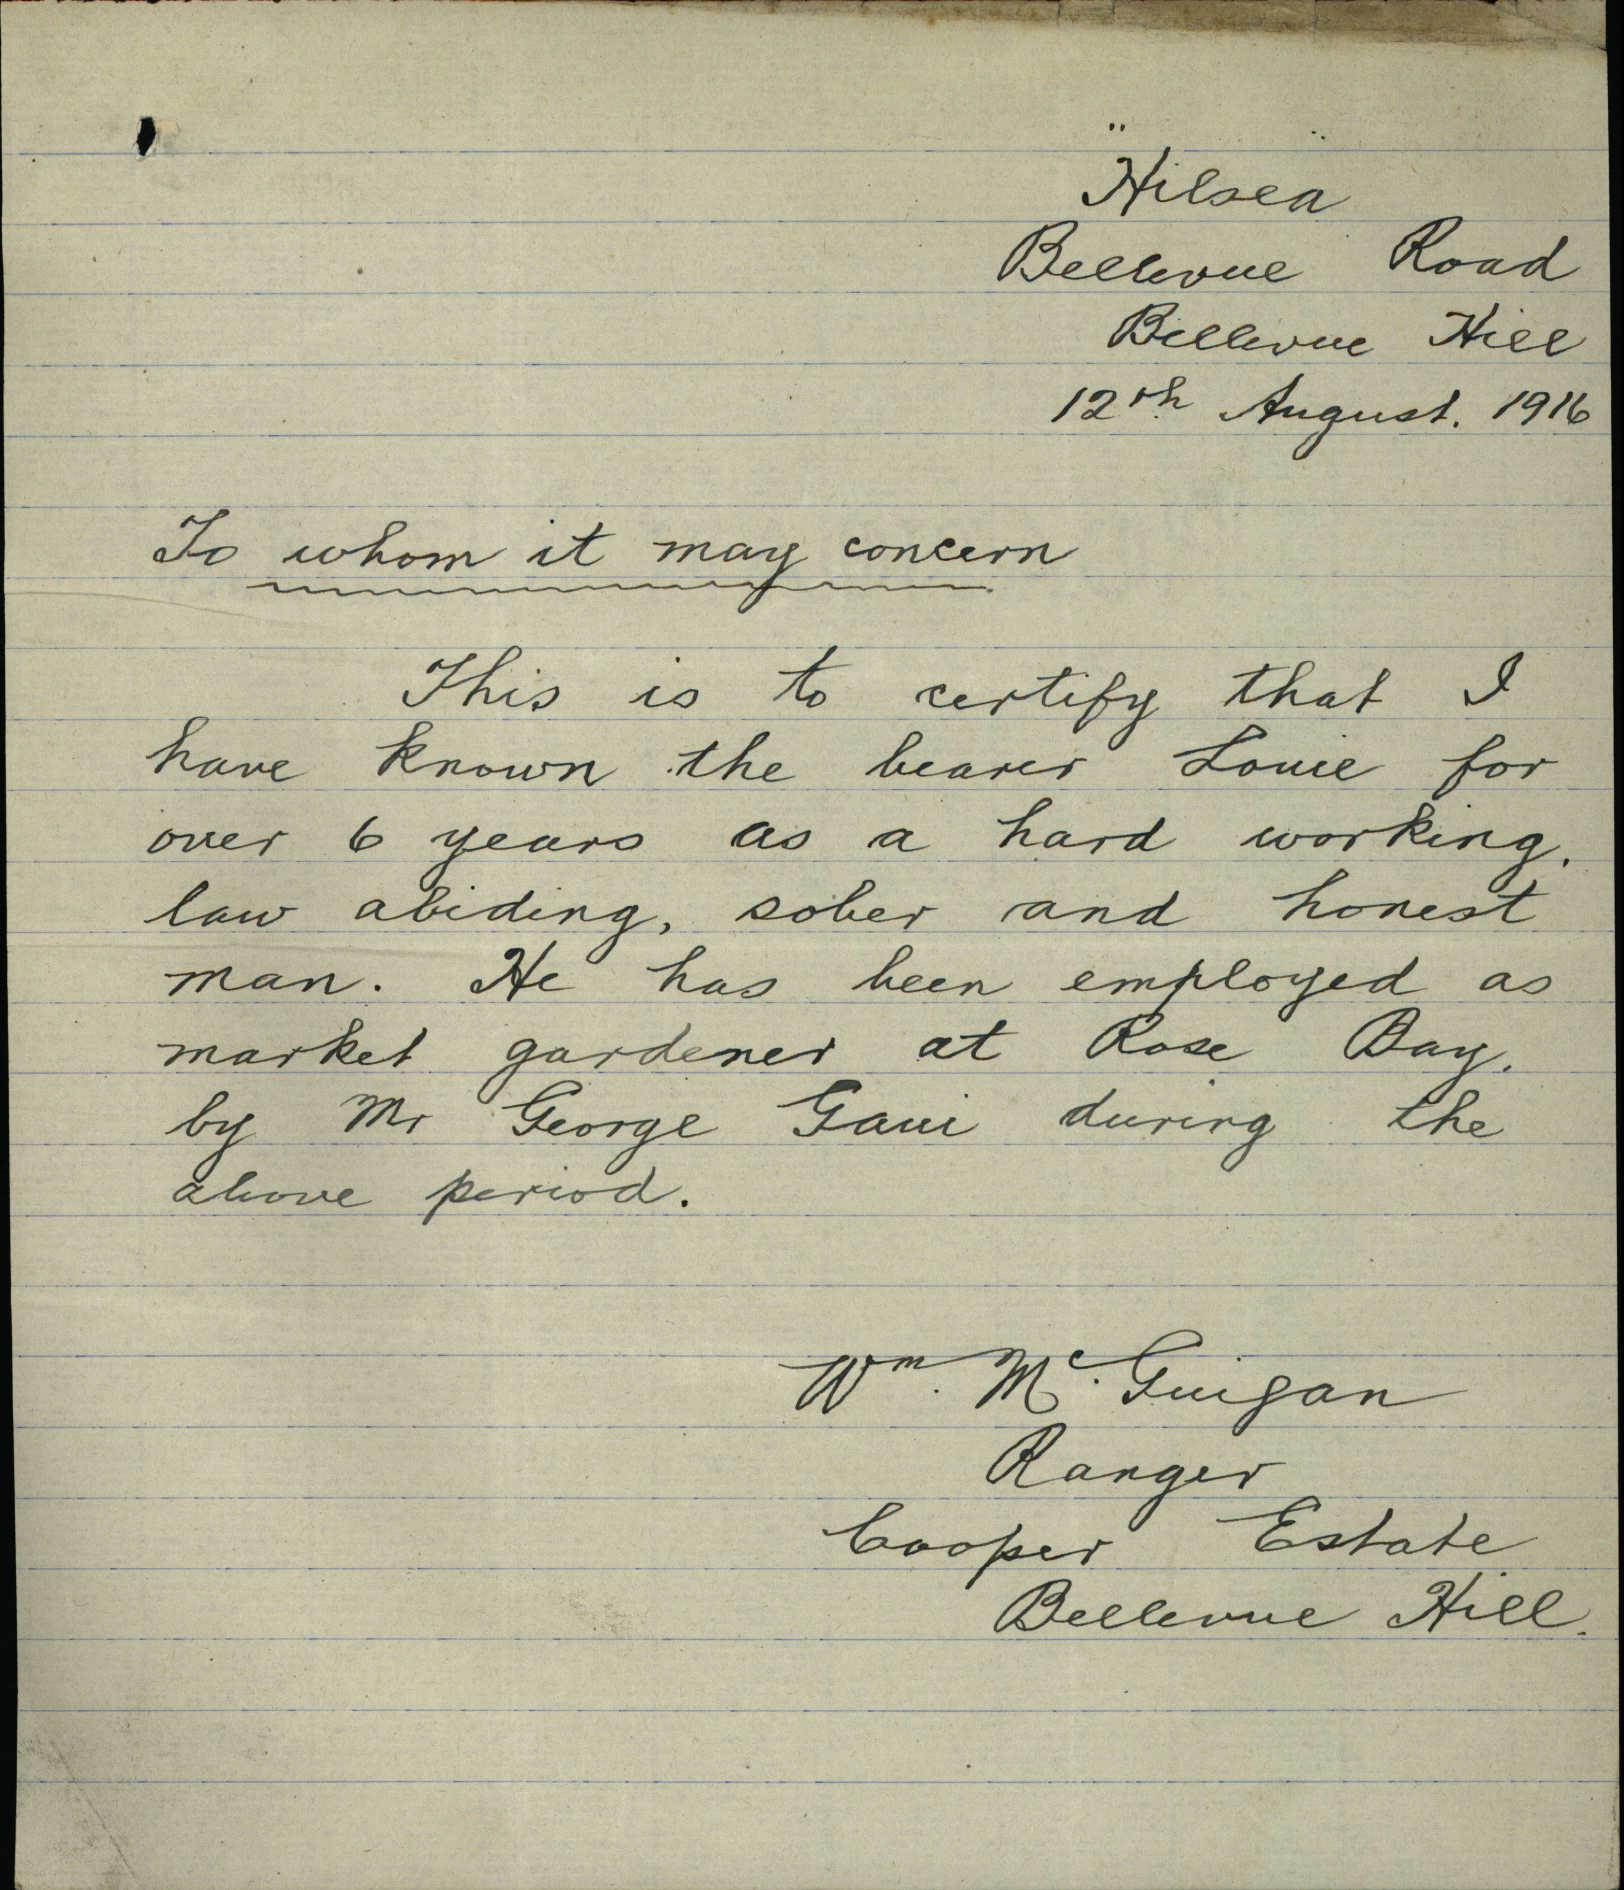 "Hilsea"
Bellevue Road
Bellevue Hill
12th August. 1916
To whom it may concern
This is to certify that I
have known the bearer Louie for
over 6 years as a hard working,
law abiding, sober and honest
man. He has been employed as
market gardener at Rose Bay,
by Mr George Gaui during the
above period.
Wm. Mc. Guigan
Ranger
Cooper Estate
Bellevue Hill.